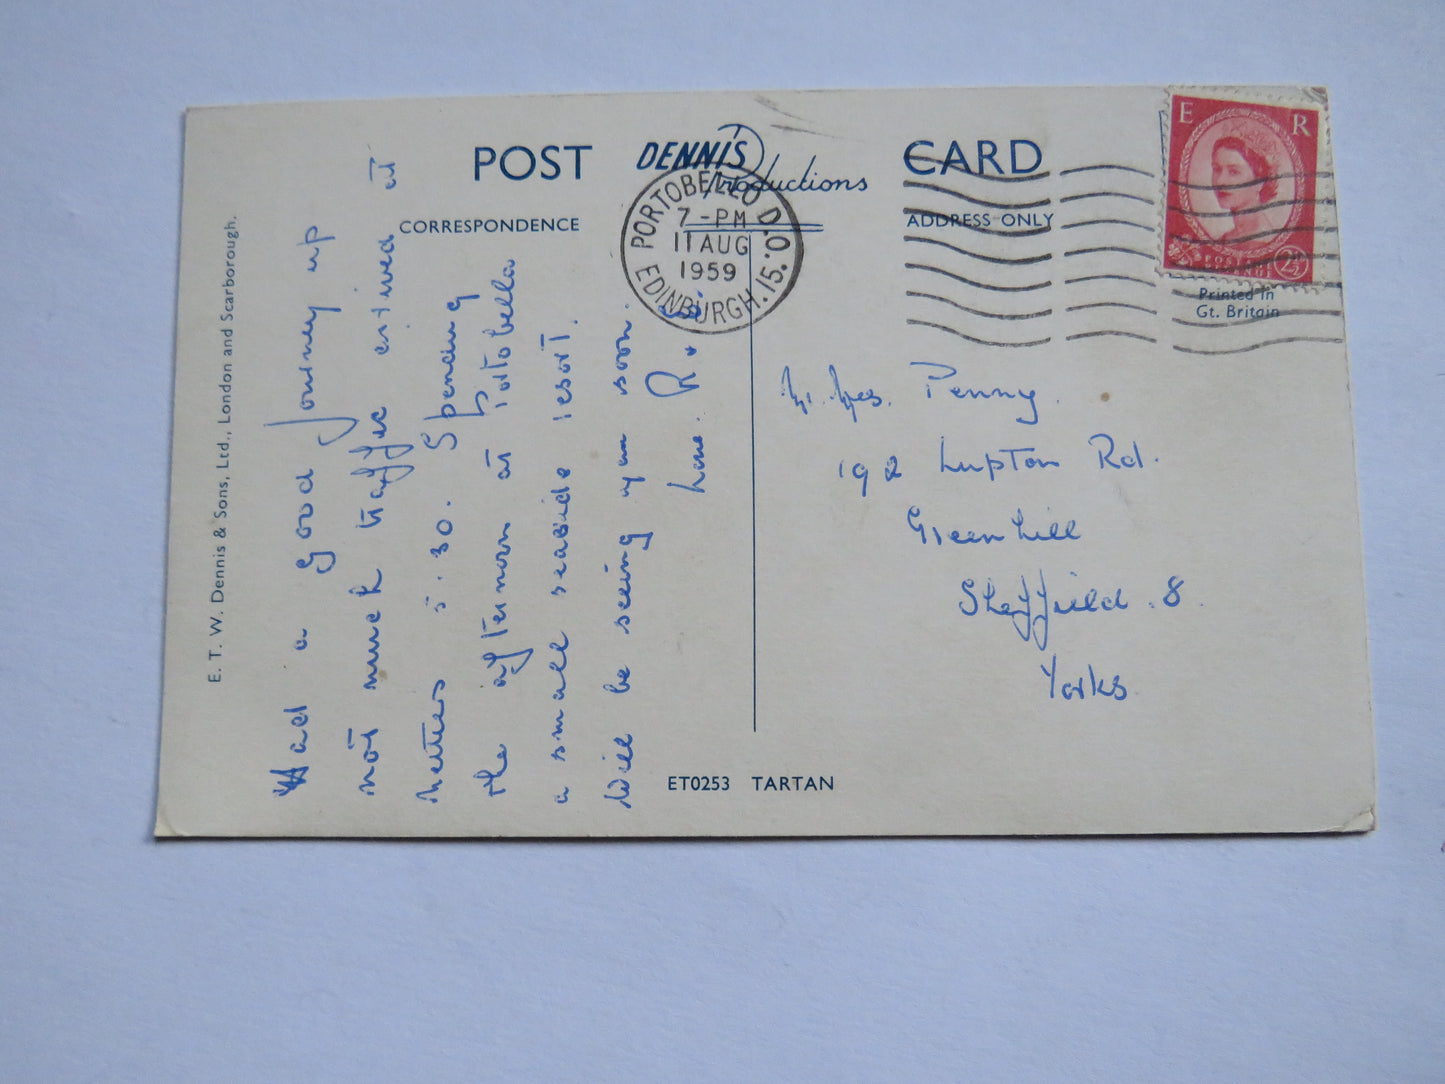 POST
DENNIS
Productions
CARD
CORRESPONDENCE
ADDRESS ONLY
PORTOBELLO D.O.
7-PM
11 AUG
1959
EDINBURGH. 15.
E R
POSTAGE
2½
Printed in
Gt. Britain
E. T. W. Dennis & Sons, Ltd., London and Scarborough.
Had a good journey up
not much traffic arrived at
5.30. Spending
the afternoon at Portobello
a small seaside resort.
Will be seeing you soon.
Love. R.
Penny.
192 Lupton Rd.
Greenhill
Sheffield. 8.
Yorks.
ET0253 TARTAN